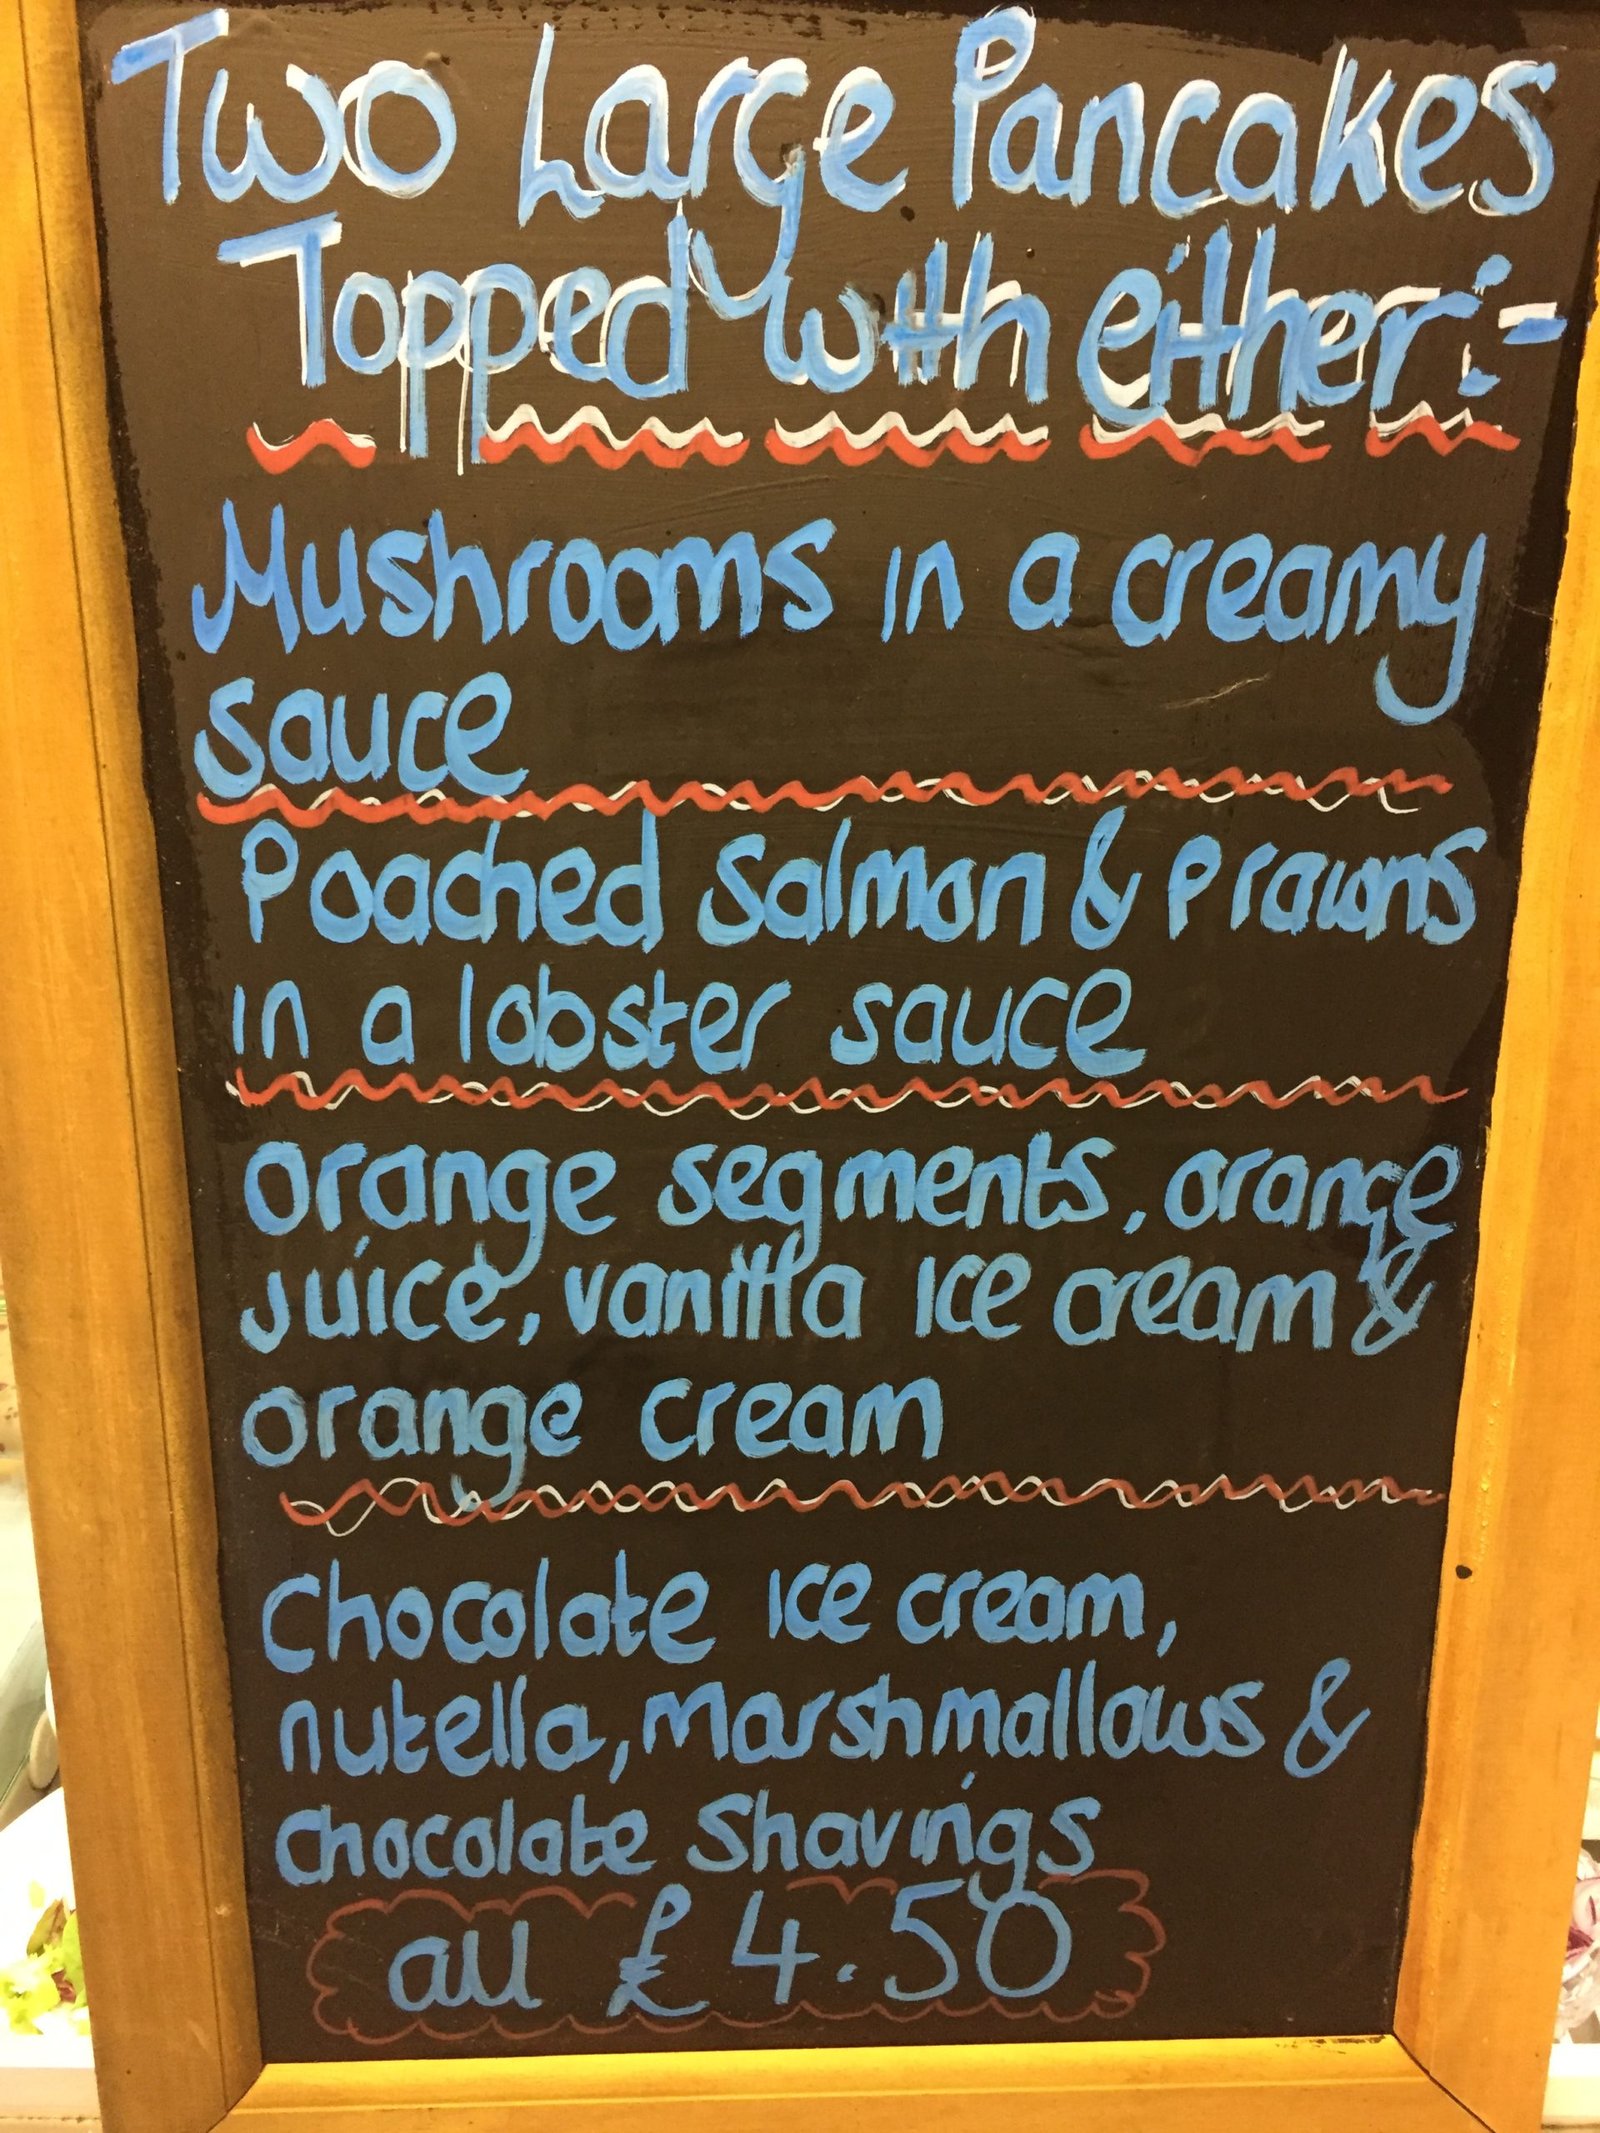 Two Large Pancakes
Topped with either:-
Mushrooms in a creamy
sauce
Poached Salmon & Prawns
in a lobster sauce
Orange segments, orange
juice, vanilla ice cream &
orange cream
Chocolate ice cream,
nutella, Marshmallows &
Chocolate Shavings
all £4.50